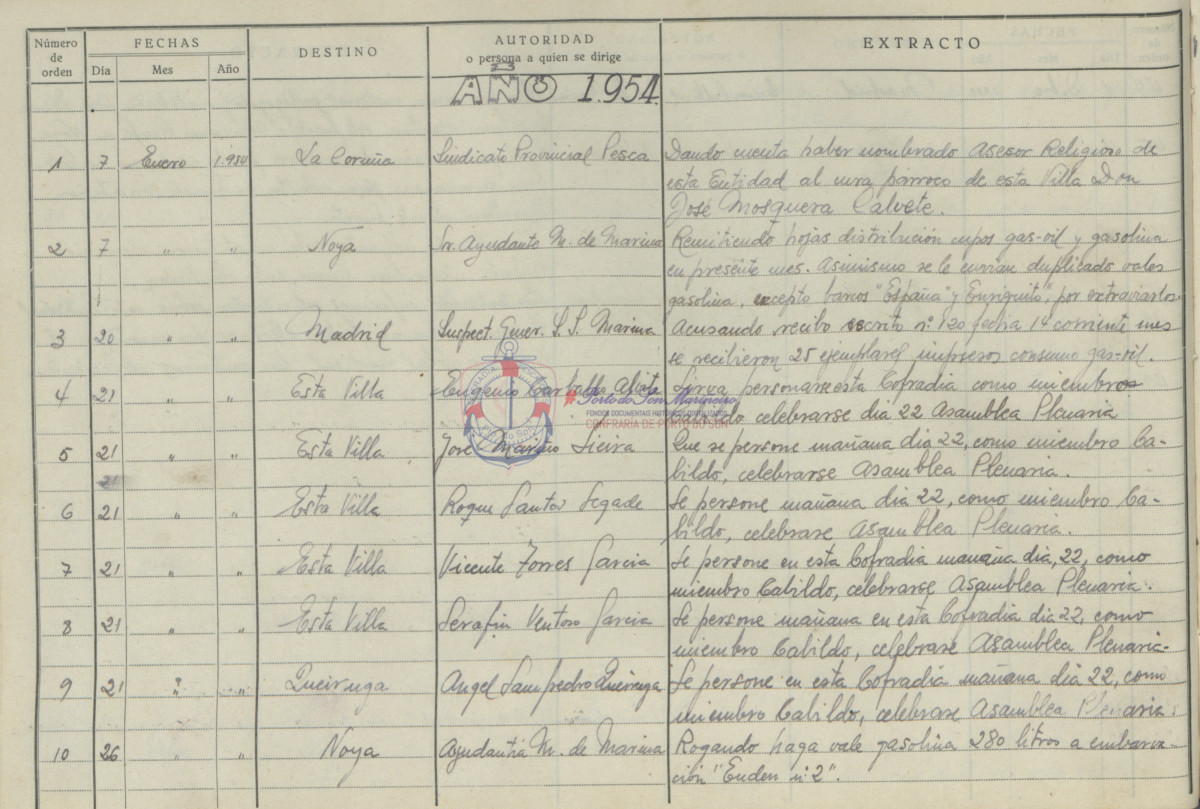 Número de orden
FECHAS
Día Mes Año
DESTINO
AUTORIDAD
o persona a quien se dirige
EXTRACTO
AÑO 1.954.
1 7 Enero 1.954 La Coruña Sindicato Provincial Pesca Dando cuenta haber nombrado Asesor Religioso de
esta Entidad al cura párroco de esta Villa Don
José Mosquera Calvete.
2 7 " " Noya Sr. Ayudante M. de Marina Remitiendo hojas distribución cupos gas-oil y gasolina
en presente mes. Asimismo se le envian duplicado vales
gasolina, excepto barcos "España" y Enriquito", por extraviarlos.
3 20 " " Madrid Inspect. Gener. S.P. Marina Acusando recibo escrito nº 120 fecha 14 corriente mes
se recibieron 25 ejemplares impresos consumo gas-oil.
4 21 " " Esta Villa Eugenio Carballo Sirva personarse esta Cofradia como miembro
Cabildo celebrarse dia 22 Asamblea Plenaria
# Porto do Son Mariñeiro
FONDOS DOCUMENTAIS HISTÓRICOS DIXITALIZADOS
CONFRARIA DE PORTO DO SON
5 21 " " Esta Villa José Mariño Sieira Que se persone mañana dia 22, como miembro Ca-
21 bildo, celebrarse Asamblea Plenaria.
6 21 " " Esta Villa Roque Santos Segade Se persone mañana dia 22, como miembro Ca-
bildo, celebrarse Asamblea Plenaria.
7 21 " " Esta Villa Vicente Torres Garcia Se persone en esta Cofradia mañana dia, 22, como
miembro Cabildo, celebrarse Asamblea Plenaria.
8 21 " " Esta Villa Serafin Ventoso Garcia Se persone mañana en esta Cofradia dia 22, como
miembro Cabildo, celebrarse Asamblea Plenaria.
9 21 " " Queiruga Angel Sampedro Queiruga Se persone en esta Cofradia mañana dia 22, como
miembro Cabildo, celebrarse Asamblea Plenaria.
10 26 " " Noya Ayudantia M. de Marina Rogando haga vale gasolina 280 litros a embarca-
ción "Euden nº 2".